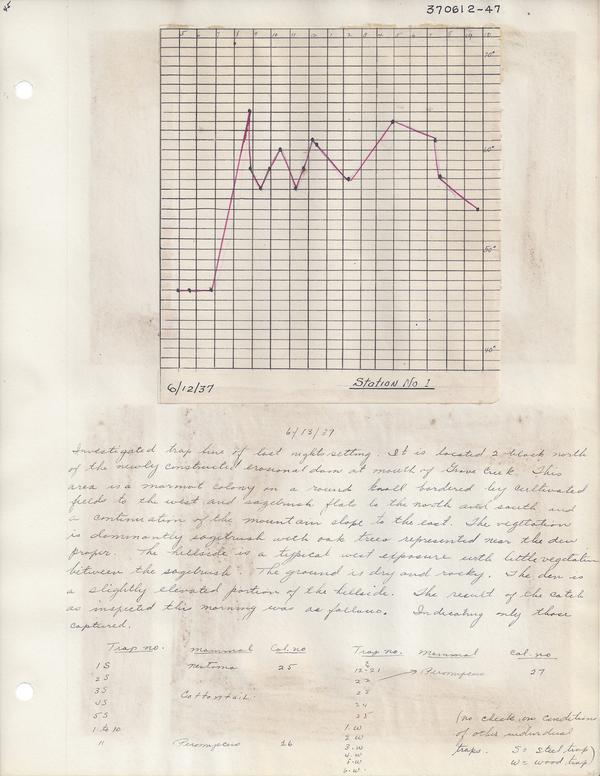 370612-47
5 6 7 8 9 10 11 12 1 2 3 4 5 6 7 8 9 10 11
70°
60°
50°
40°
6/12/37
Station No 1
6/13/37
Investigated trap line of last nights setting. It is located 2 block north
of the newly constructed erosional dam at mouth of Grove Creek. This
area is a marmot colony on a round knoll bordered by cultivated
fields to the west and sagebrush flats to the north and south and
a continuation of the mountain slope to the east. The vegetation
is dominantly sagebrush with oak trees represented near the den
proper. The hillside is a typical west exposure with little vegetation
between the sagebrush. The ground is dry and rocky. The den is
a slightly elevated portion of the hillside. The result of the catch
as inspected this morning was as follows. Indicating only those
captured.
Trap no. mammal Col. no Trap no. Mammal Col. no
1 S neotoma 25 12-21 Peromyscus 27
2 S 22
3 S Cottontail 23
4 S 24
5 S 25
1 to 10 1 W
11 Peromyscus 26 2 W
3 W
4 W
5 W
6 W
(no check on condition
of other individual
traps. S = steel trap)
W = wood trap)